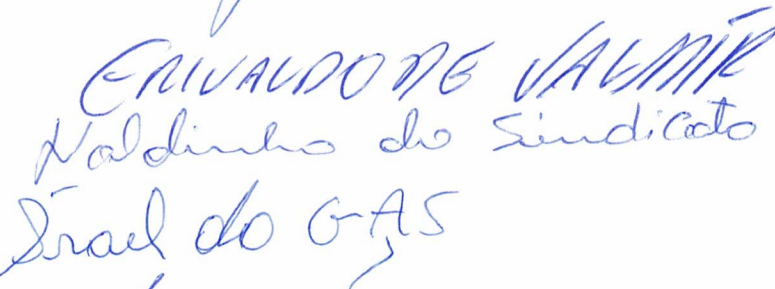 ERIVALDO DE VALMIR
Naldinho do Sindicato
Israel do GAS